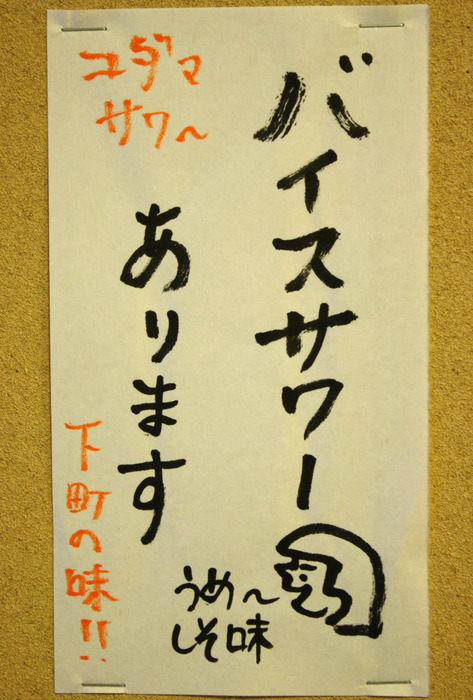 バイスサワー
あります
うめ～
しそ味
コダマ
サワ～
下町の味!!